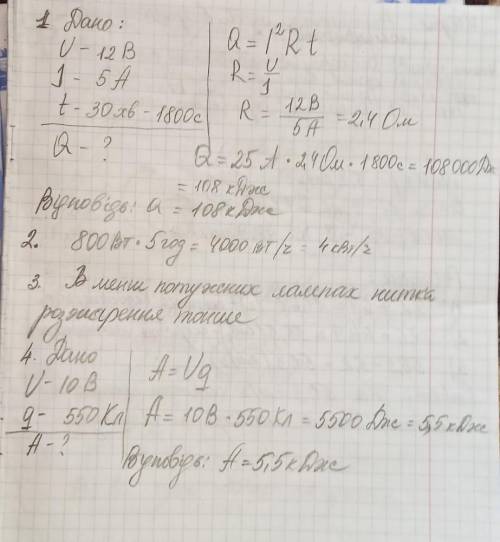 1 Дано:
U - 12 В
I - 5 А
t - 30 хв - 1800 с
Q - ?
Q = I²Rt
R = U/I
R = 12В/5А = 2,4 Ом
Q = 25 А · 2,4 Ом · 1800 с = 108000 Дж
= 108 кДж
Відповідь: Q = 108 кДж
2. 800 Вт · 5 год = 4000 Вт/г = 4 кВт/г
3. В менш потужних лампах нитка
розжирення тонше
4. Дано
U - 10 В
q - 550 Кл
A - ?
A = Uq
A = 10 В · 550 Кл = 5500 Дж = 5,5 кДж
Відповідь: A = 5,5 кДж